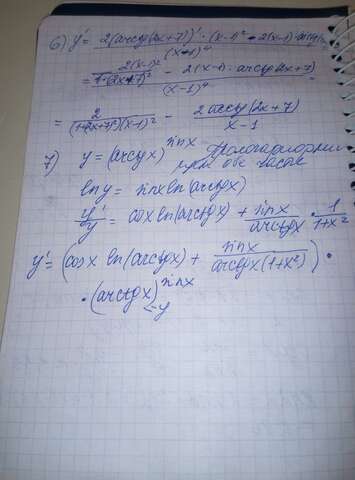 6) y' = 2(arcctg(2x+7))' · (x-1)² - 2(x-1) · arcctg
(x-1)⁴
= 2(x-1)² / 1+(2x+7)² - 2(x-1) · arcctg(2x+7)
(x-1)⁴
= 2 / (1+(2x+7)²)(x-1)² - 2arcctg(2x+7) / x-1
7) y = (arctgx)^sinx
обе части
lny = sinx ln(arctgx)
y'/y = cosx ln(arctgx) + sinx/arctgx · 1/1+x²
y' = (cosx ln(arctgx) + sinx/arctgx(1+x²)) ·
· (arctgx)^sinx
= y